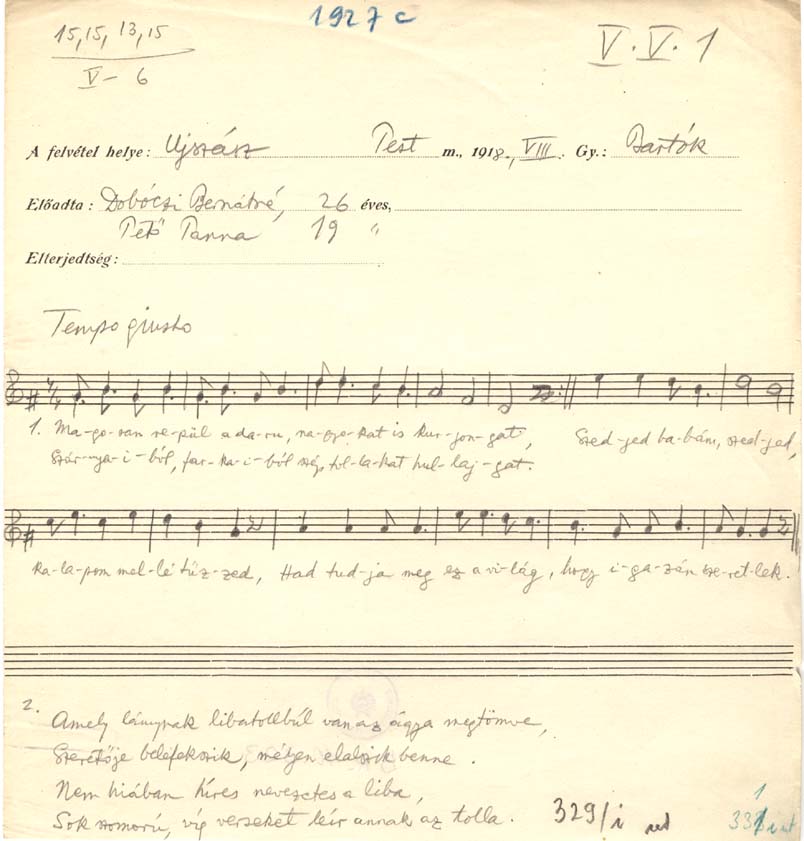 1927 c
15, 15, 13, 15
V – 6
V. V. 1
A felvétel helye: Ujszász Pest m., 1918., VIII. Gy.: Bartók
Előadta: Dobóczi Bernátné, 26 éves,
Pető Panna 19 "
Elterjedtség:
Tempo giusto
1. Ma-go-san re-pül a da-ru, na-gyo-kat is kur-jon-gat, Szed-jed ba-bám, szed-jed,
Szár-nya-i-ból, far-ka-i-ból szép tol-la-kat hul-laj-gat.
Ka-la-pom mel-lé tűz-zed, Had tud-ja meg ez a vi-lág, hogy i-ga-zán sze-ret-lek.
2. Amely lánynak libatollbúl van az ágya megtömve,
Szeretője beléfekszik, mélyen elalszik benne.
Nem hiában híres nevezetes a liba,
Sok szomorú, víg verseket leír annak az tolla.
329/i